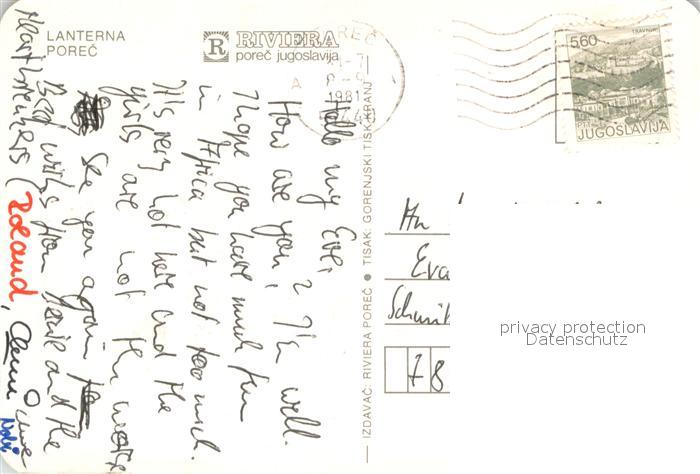 LANTERNA
POREČ
RIVIERA
poreč jugoslavija
1981
TRAVNIK
5,60
JUGOSLAVIJA
IZDAVAČ: RIVIERA POREČ ● TISAK: GORENJSKI TISK KRANJ
Hello my Eve,
How are you? I'm well.
I hope you have much fun
in Africa but not too much.
It's very hot here and the
girls are not the worst
See you again
Best wishes from and the
Heartbreakers (Roland,
Eva
78
privacy protection
Datenschutz